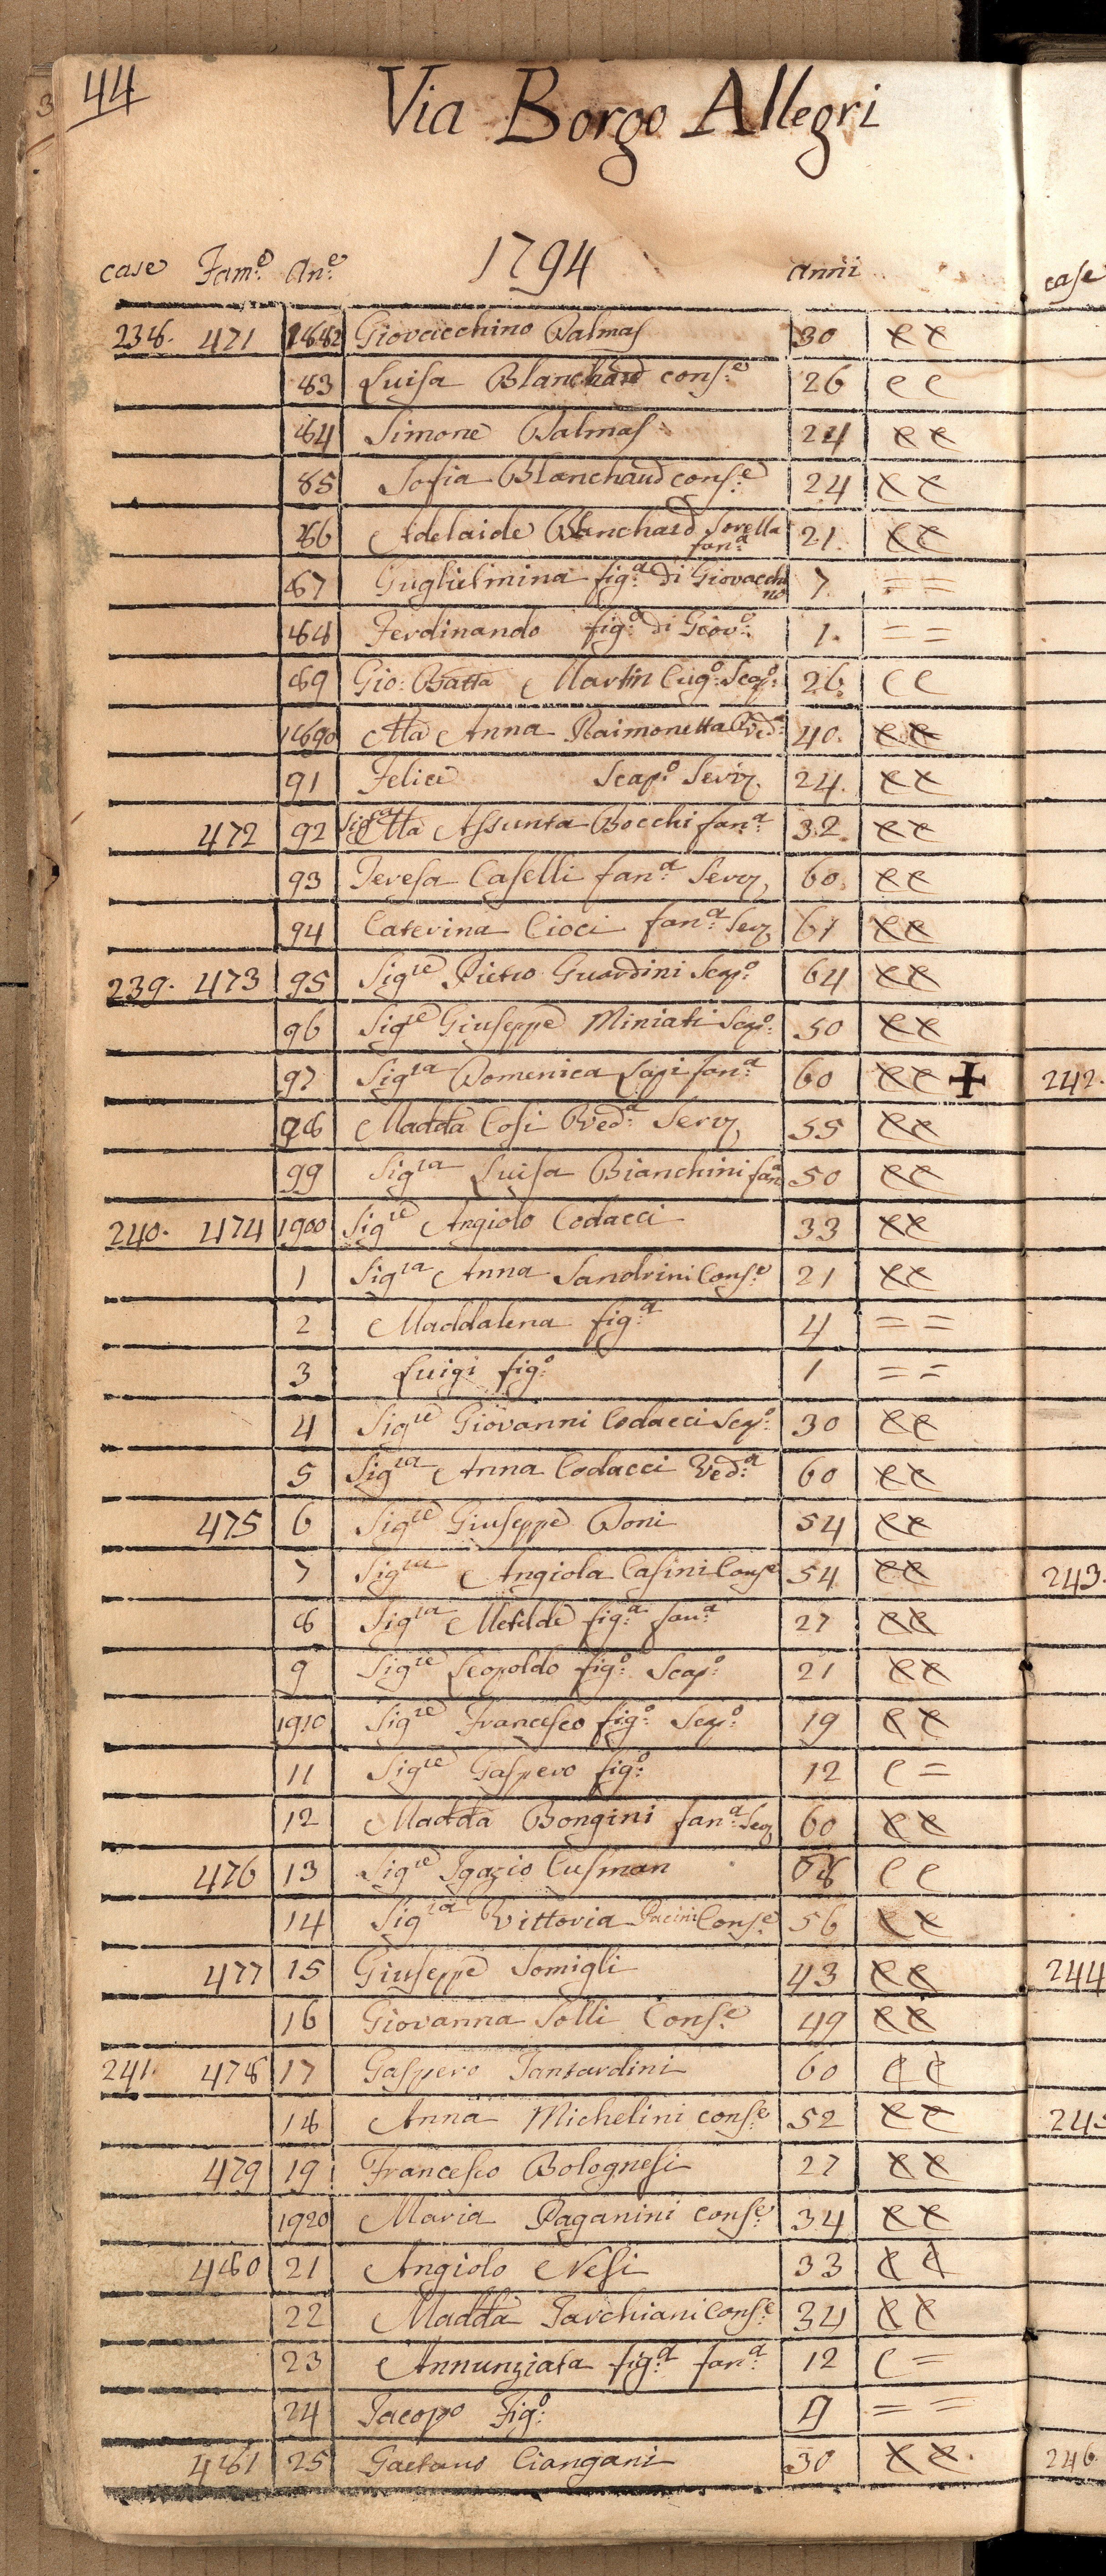 44
Via Borgo Allegri
1794
case Fam.e An.e anni
238. 471 1882 Giovacchino Dalmas 30 e e
83 Luisa Blanchard cons.e 26 e e
84 Simone Dalmas 24 e e
85 Sofia Blanchaud cons.e 24 e e
86 Adelaide Blanchard Sorella fan.a 21. e e
87 Guglielmina fig.a di Giovacchino 7. = =
88 Ferdinando fig.o di Giov.o 1. = =
89 Gio: Batta Martin Cug.o Scap.o 26 C C
1890 Ma Anna Raimonetta Ved.a 40. e e
91 Felice Scap.o Serv. 24. e e
472 92 Sig.ra Ma Assunta Bocchi fan.a 32 e e
93 Teresa Caselli fan.a Serv. 60. e e
94 Caterina Cioci fan.a Ser. 61 e e
239. 473 95 Sig.re Pietro Guardini Scap.o 64 e e
96 Sig.re Giuseppe Miniati Scap.o 50 e e
97 Sig.ra Domenica Lapi fan.a 60 e e +
98 Madda Cosi Ved.a Serv. 55 e e
99 Sig.ra Luisa Bianchini fan.a 50 e e
240. 474 1900 Sig.re Angiolo Codacci 33 e e
1 Sig.ra Anna Sandrini Cons.e 21 e e
2 Maddalena fig.a 4 = =
3 Luigi fig.o 1 = =
4 Sig.re Giovanni Codacci Scap.o 30 e e
5 Sig.ra Anna Codacci Ved.a 60 e e
475 6 Sig.re Giuseppe Doni 54 e e
7 Sig.ra Angiola Casini Cons.e 54 e e
8 Sig.ra Metilde fig.a fan.a 27 e e
9 Sig.re Leopoldo fig.o Scap.o 21 e e
1910 Sig.re Francesco fig.o Scap.o 19 e e
11 Sig.re Gaspero fig.o 12 C =
12 Madda Bongini fan.a Ser. 60 e e
476 13 Sig.re Igazio Cusman 68 e e
14 Sig.ra Vittoria Pacini Cons.e 56 e e
477 15 Giuseppe Somigli 43 e e
16 Giovanna Solli Cons.e 49 e e
241. 478 17 Gaspero Tantardini 60 C C
18 Anna Michelini cons.e 52 e e
479 19 Francesco Bolognesi 27 e e
1920 Maria Paganini cons.e 34 e e
480 21 Angiolo Nesi 33 C C
22 Madda Tarchiani Cons.e 34 e e
23 Annunziata fig.a fan.a 12 C =
24 Jacopo Fig.o 9 = =
481 25 Gaetano Ciangani 30 e e
case
242.
243.
244
245
246